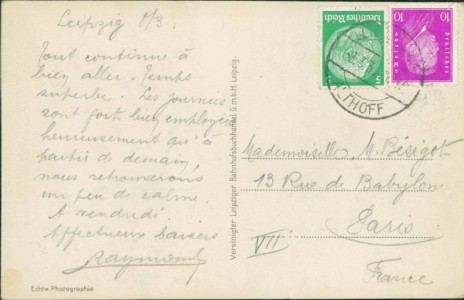 Leipzig 8/3.
Tout continue à
bien aller. Temps
superbe. Les journées
sont fort bien employées
heureusement qu'à
partir de demain,
nous retrouverons
un peu de calme.
A vendredi.
Affectueux baisers
Raymond
Echte Photographie
Vereinigter Leipziger Bahnhofsbuchhandel G.m.b.H. Leipzig.
Deutsches Reich
5
10
Deutsches
Reich
Mademoiselle M. Bésigot
13 Rue de Babylone
Paris
VII
France